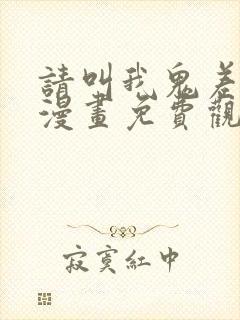 請叫我鬼差
漫畫免費觀
寂寞紅中